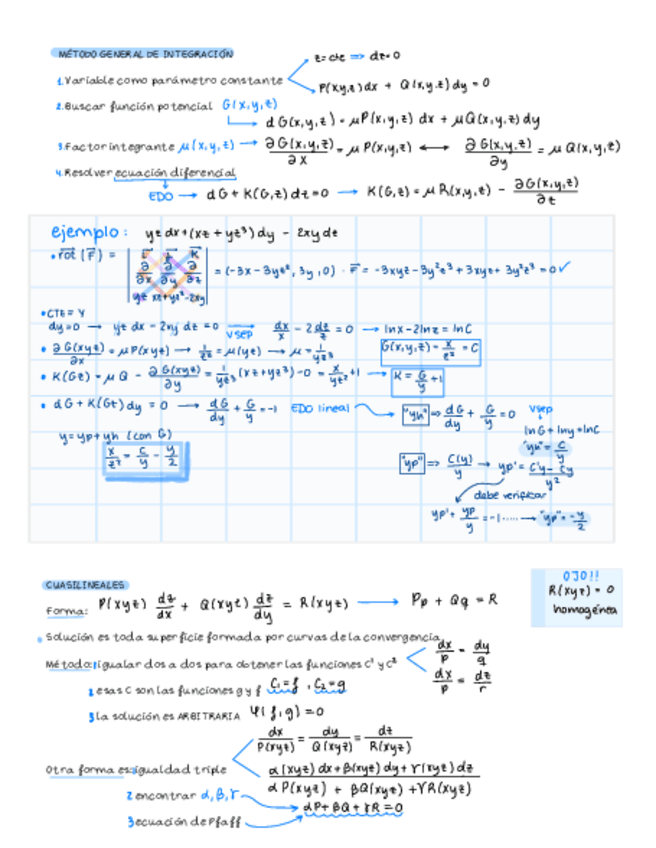 MÉTODO GENERAL DE INTEGRACIÓN
z=cte => dz=0
1.Variable como parámetro constante
P(x,y,z)dx + Q(x,y,z)dy = 0
2.Buscar función potencial G(x,y,z)
dG(x,y,z) = μP(x,y,z) dx + μQ(x,y,z) dy
3.Factor integrante μ(x,y,z) → ∂G(x,y,z)/∂x = μP(x,y,z) ←→ ∂G(x,y,z)/∂y = μQ(x,y,z)
4.Resolver ecuación diferencial
EDO → dG + K(G,z)dz=0 → K(G,z) = μR(x,y,z) - ∂G(x,y,z)/∂z
ejemplo: yz dx+(xz + yz³)dy - 2xydz
• rot (F) = | i j k ∂/∂x ∂/∂y ∂/∂z yz xz+yz³ -2xy | = (-3x-3yz², 3y, 0) · F = -3xyz-3y²z³+3xyz+3y²z³=0 ✓
• CTE = Y
dy=0 → yz dx - 2xy dz = 0 → vsep dx/x - 2dz/z = 0 → lnx-2lnz = lnC
G(x,y,z) = x/z² = C
• ∂G(xyz)/∂x = μP(xyz) → 1/z² = μ(yz) → μ = 1/yz³
• K(Gz) = μQ - ∂G(xyz)/∂y = 1/yz³ (xz+yz³)-0 = x/yz² +1 → K = G/y +1
• dG+K(Gz)dy = 0 → dG/dy + G/y = -1 EDO lineal "yh" => dG/dy + G/y = 0 vsep
lnG + lny=lnC
y=yp+yh (con G)
"yh" = C/y
x/z² = C/y - y/2
"yp" => C(y)/y → yp' = C'y - Cy/y²
debe verificar
yp' + yp/y = -1 ..... → "yp" = -y/2
CUASILINEALES
OJO!!
R(xyz) = 0
homogénea
Forma: P(xyz) dz/dx + Q(xyz) dz/dy = R(xyz) → Pp + Qq = R
Solución es toda superficie formada por curvas de la convergencia
Método: 1igualar dos a dos para obtener las funciones C¹ y C²
dx/p = dy/q
dx/p = dz/r
2esas C son las funciones g y f C₁=f , C₂=g
3la solución es ARBITRARIA Ψ(f,g) = 0
dx/P(xyz) = dy/Q(xyz) = dz/R(xyz)
Otra forma es:1igualdad triple
α(xyz) dx+β(xyz)dy+γ(xyz)dz / αP(xyz) + βQ(xyz) +γR(xyz)
2encontrar α,β,γ
αP+βQ+γR=0
3ecuación de Pfaff